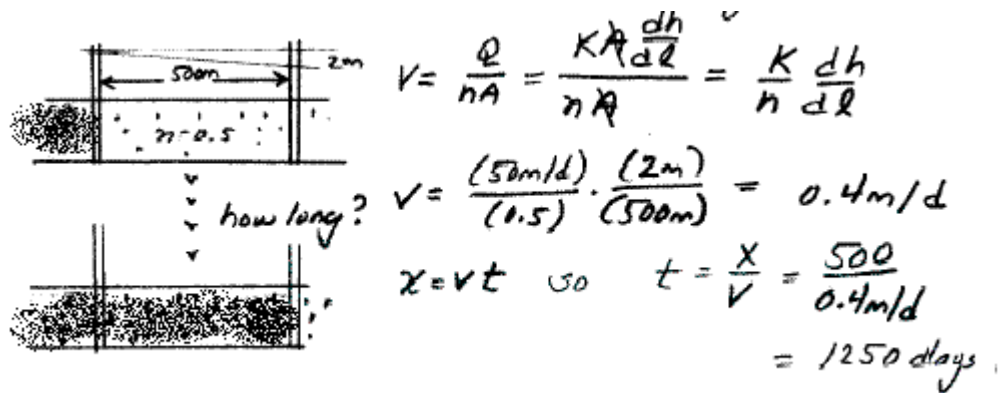 500m
2m
n=0.5
how long?
v = Q/nA = KA dh/dl / nA = K/n dh/dl
v = (50m/d)/(0.5) · (2m)/(500m) = 0.4m/d
x = vt so t = x/v = 500/0.4m/d
= 1250 days